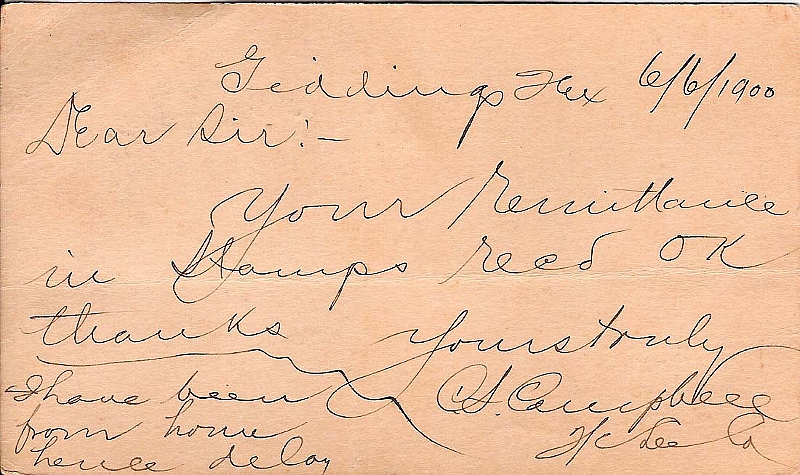 Giddings Tex 6/6/1900
Dear Sir:-
Your Remittance
in Stamps recd OK
thanks Yours truly
C S. Campbell
Lee Co
I have been
from home
hence delay